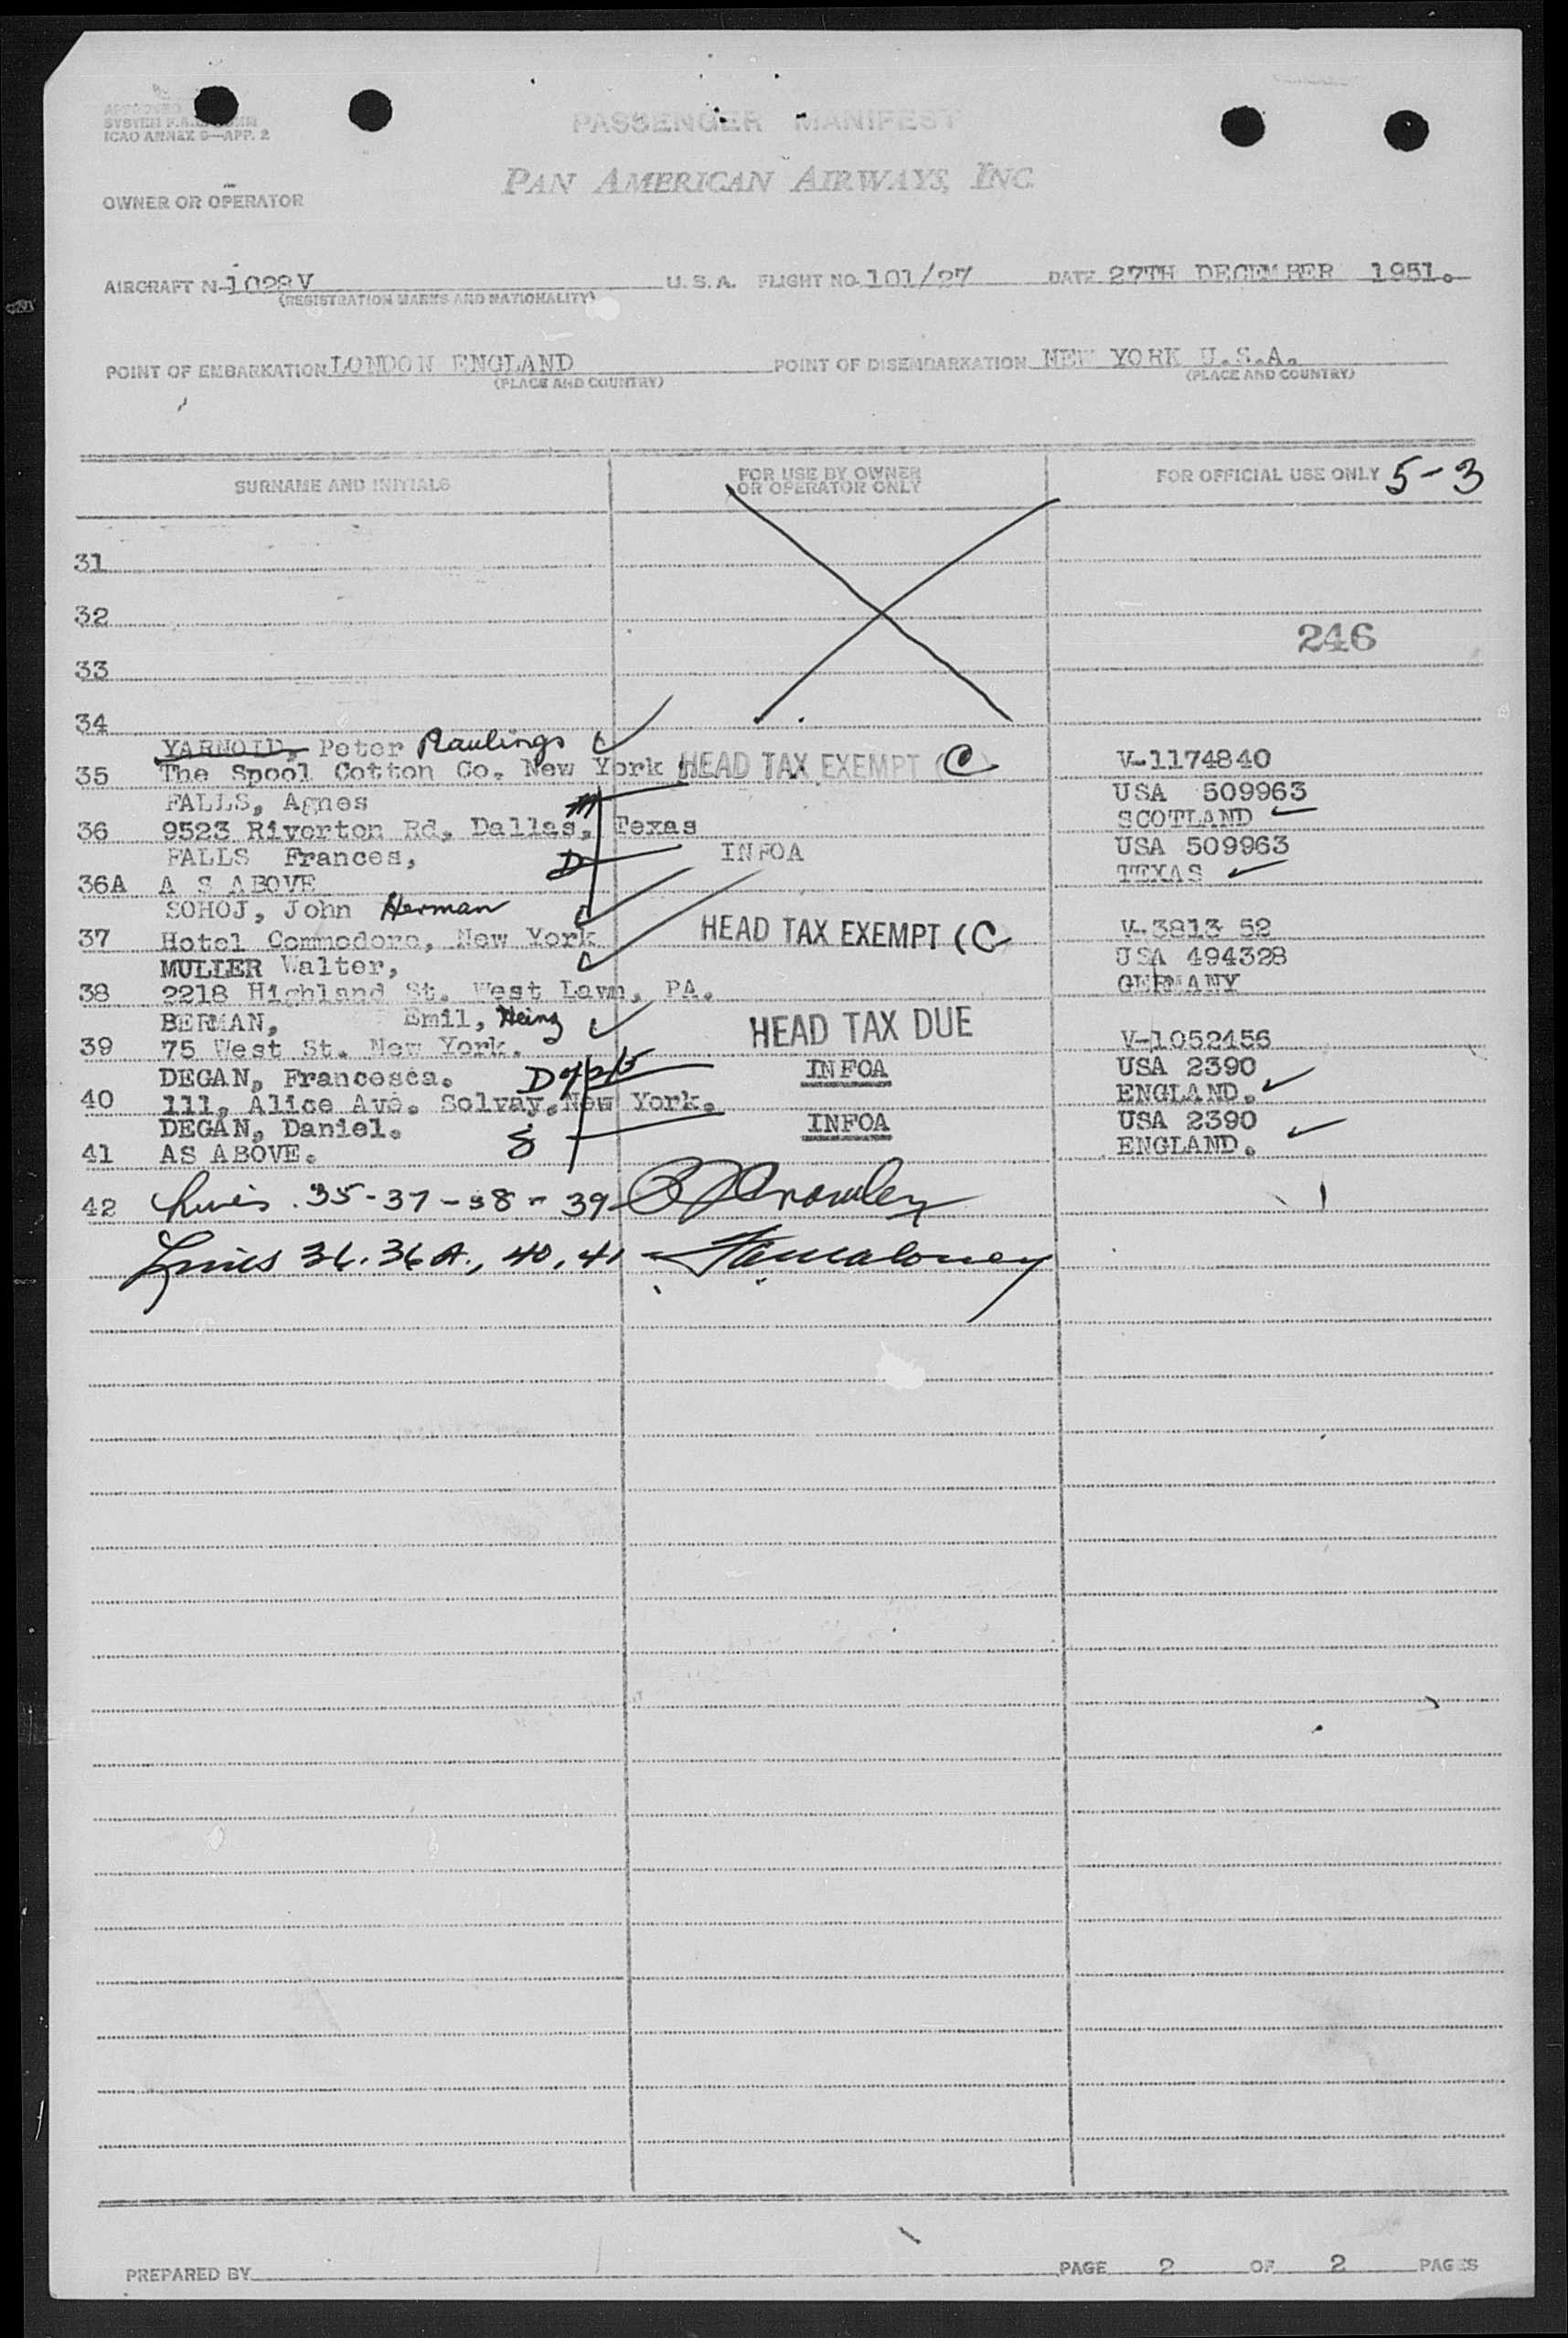 APPROVED
SYSTEM
ICAO ANNEX 9—APP. 2
PASSENGER MANIFEST
PAN AMERICAN AIRWAYS, INC.
OWNER OR OPERATOR
AIRCRAFT N-1028V U. S. A. FLIGHT NO. 101/27 DATE 27TH DECEMBER 1951.
(REGISTRATION MARKS AND NATIONALITY)
POINT OF EMBARKATION LONDON ENGLAND POINT OF DISEMBARKATION NEW YORK U.S.A.
(PLACE AND COUNTRY) (PLACE AND COUNTRY)
SURNAME AND INITIALS FOR USE BY OWNER OR OPERATOR ONLY FOR OFFICIAL USE ONLY 5-3
31
32
246
33
34
YARNOLD, Peter Raulings
35 The Spool Cotton Co. New York HEAD TAX EXEMPT (C) V-1174840
FALLS, Agnes M USA 509963
36 9523 Riverton Rd, Dallas, Texas SCOTLAND
FALLS Frances, D INFOA USA 509963
36A A S ABOVE TEXAS
SOHOJ, John Herman
37 Hotel Commodore, New York HEAD TAX EXEMPT (C V-3813 52
MULLER Walter, USA 494328
38 2218 Highland St. West Lawn, PA. GERMANY
BERMAN, Emil, Heinz HEAD TAX DUE
39 75 West St. New York. V-1052456
DEGAN, Francesca. INFOA USA 2390
40 111, Alice Ave. Solvay. New York. ENGLAND.
DEGAN, Daniel. INFOA USA 2390
41 AS ABOVE. ENGLAND.
42 Lines 35-37-38-39 Crowley
Lines 36. 36A., 40, 41 Maloney
PREPARED BY PAGE 2 OF 2 PAGES